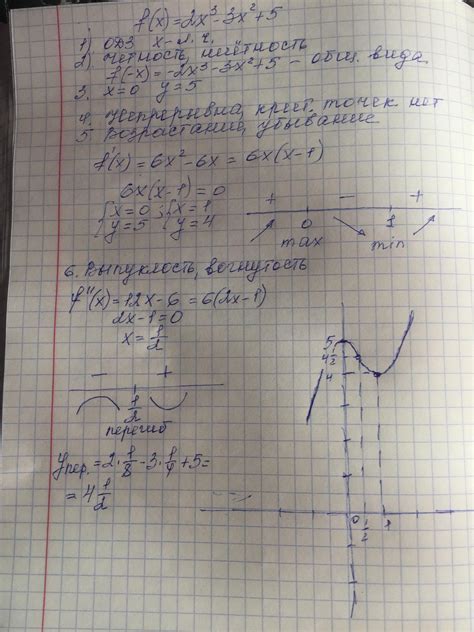 f(x)=2x³-3x²+5
1) ОДЗ x-л.ч.
2) чётность, нечётность
f(-x)=-2x³-3x²+5 - общ. вида
3. x=0 y=5
4. Непрерывна, крит. точек нет
5 Возрастание, убывание
f'(x)=6x²-6x=6x(x-1)
6x(x-1)=0
{x=0 ; {x=1
{y=5 {y=4
+ - +
0 1
max min
6. Выпуклость, вогнутость
f"(x)=12x-6=6(2x-1)
2x-1=0
x=1/2
- +
1/2
перегиб
yпер.=2·1/8-3·1/4+5=
=4 1/2
5
4 1/2
4
0 1/2 1